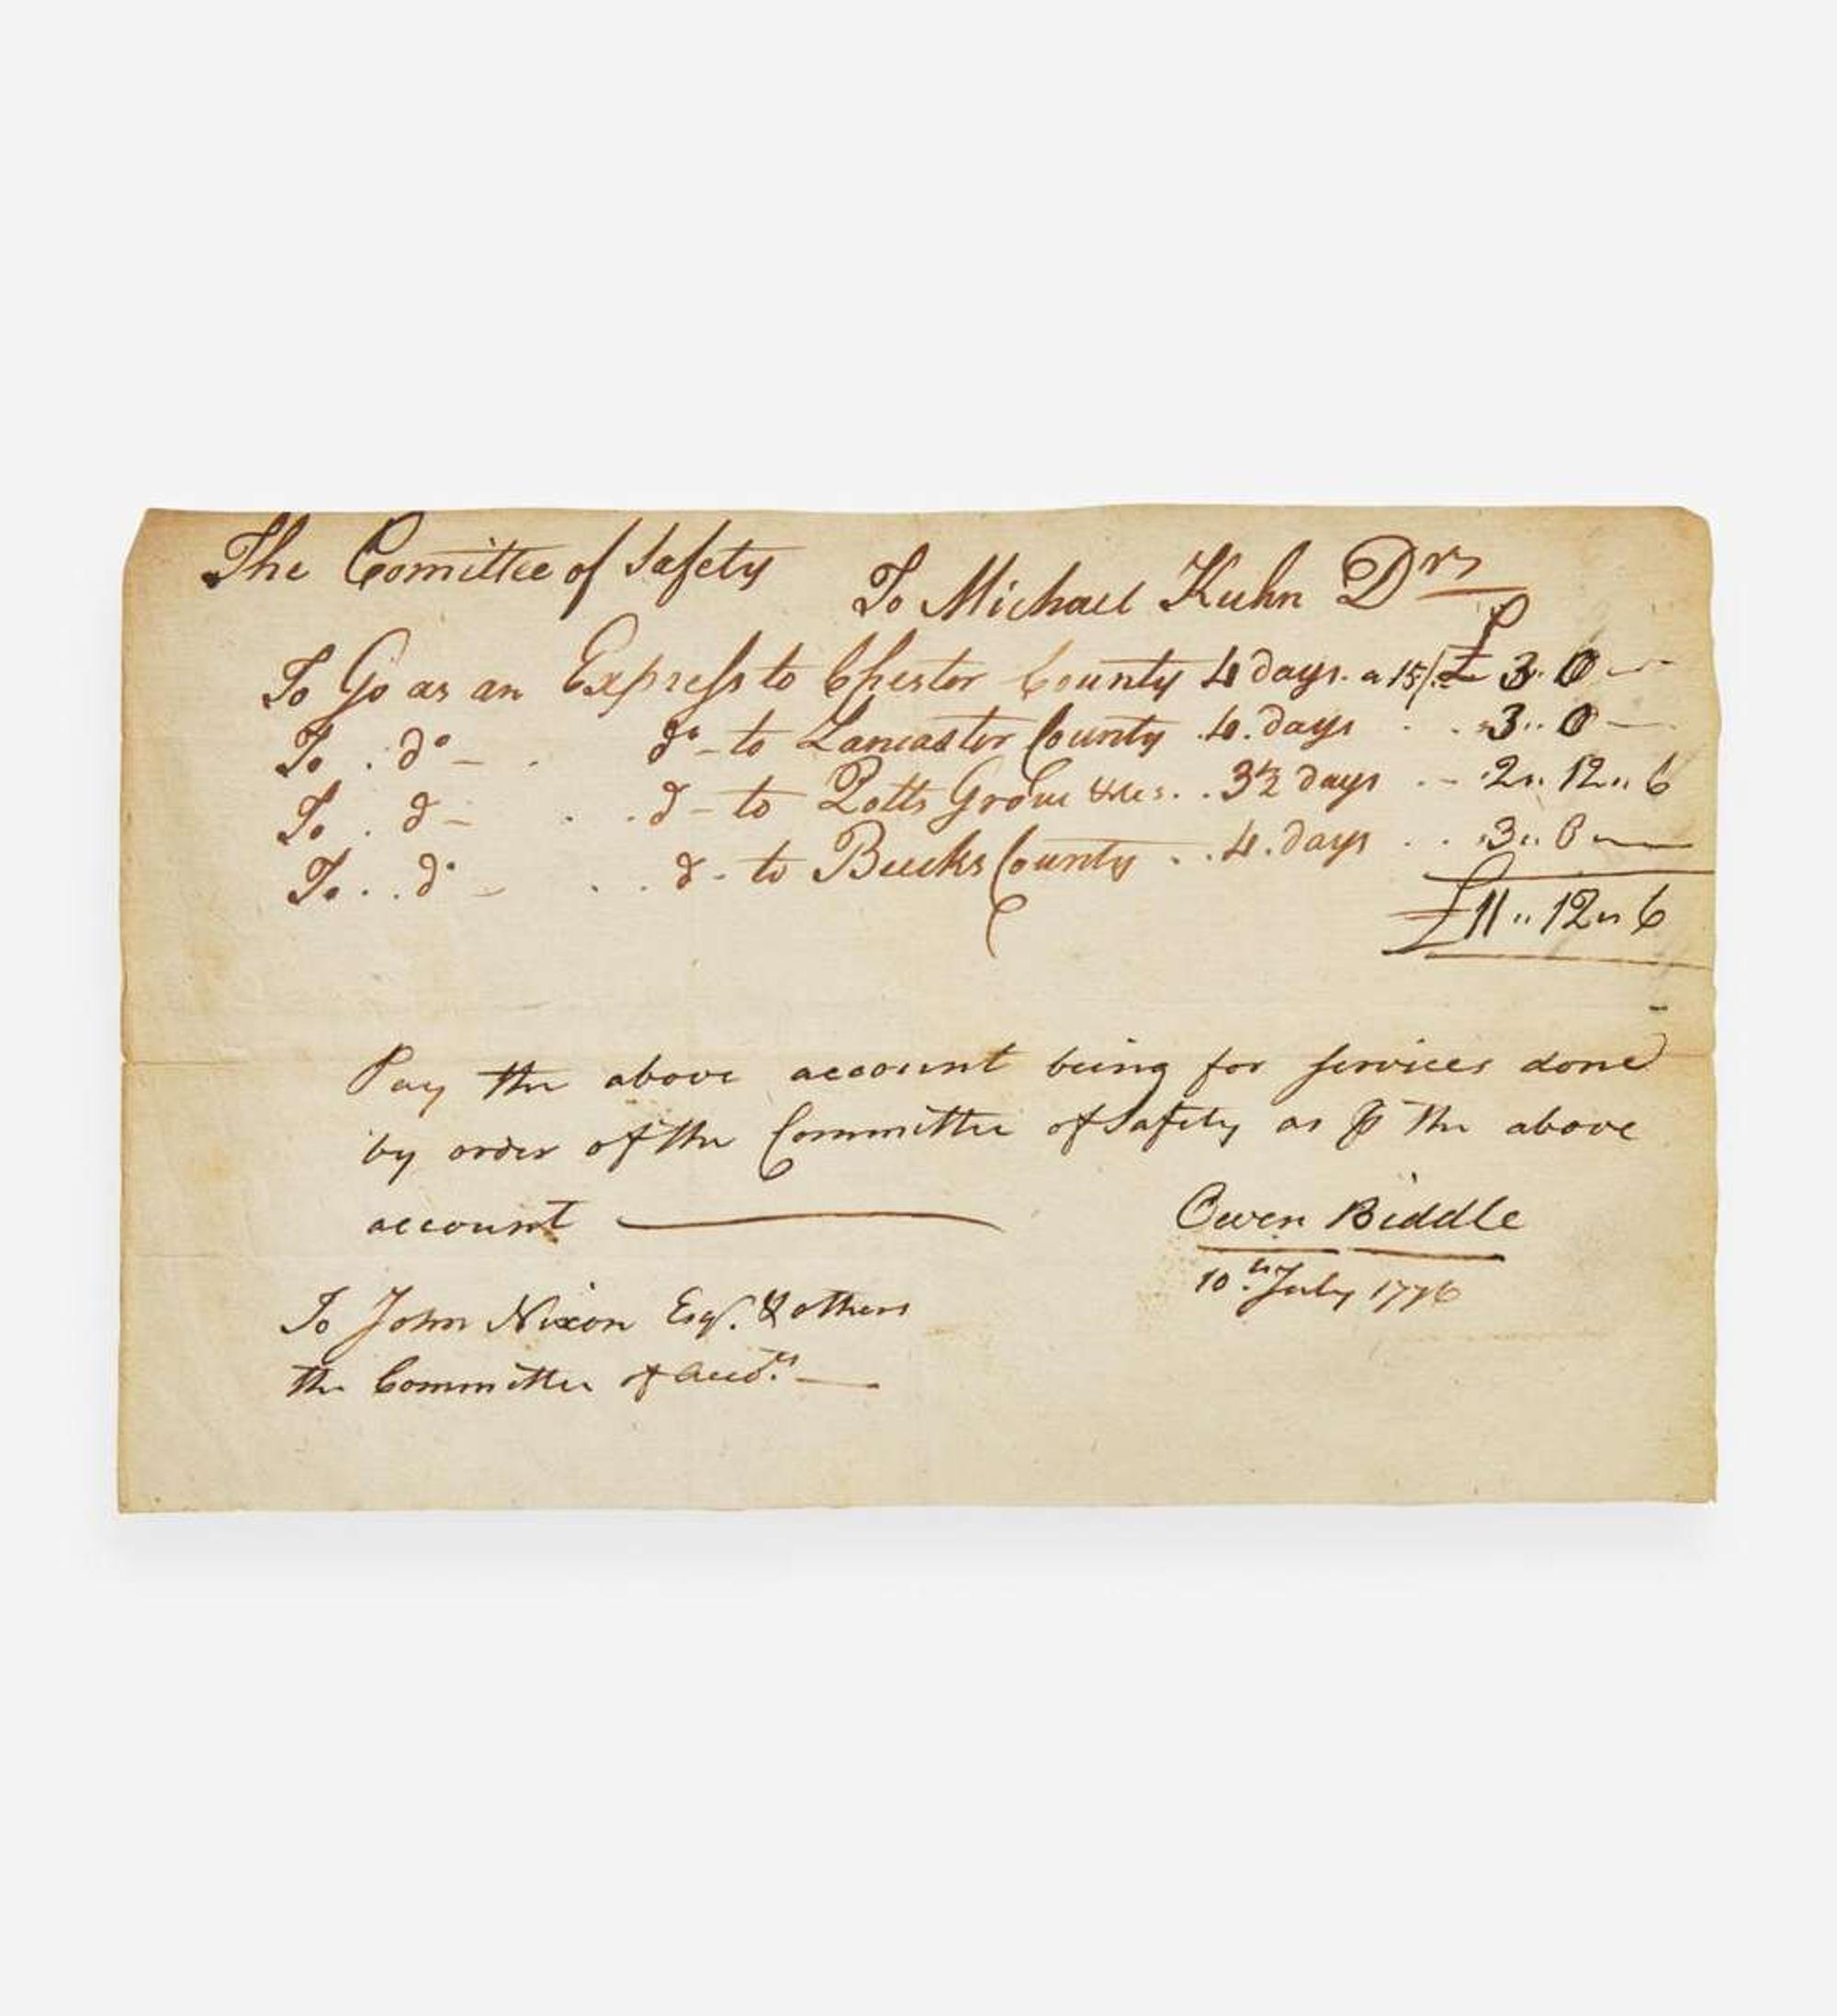 The Comittee of Safety To Michael Kuhn Drs
£
To Go as an Express to Chester County 4 days. a 15/. £ 3.. 0 —
To . do — . do - to Lancaster County .4. days . . 3.. 0 —
To . d — . . d - to Potts Grove . . 3½ days . - 2.. 12.. 6
To . . do - . . d - to Bucks County . . 4. days . . 3.. 0 —
£11.. 12.. 6
Pay the above account being for services done
by order of the Committee of Safety as ⅌ the above
account —
Owen Biddle
10th July 1776
To John Nixon Esqr. & others
the Committee of Accts. —